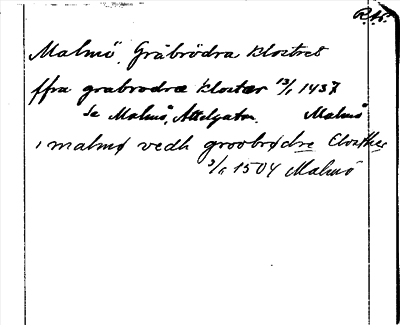 R.Ar.
Malmö, Gråbrödra klostret
ffra grabrodra kloster 13/1 1437
se Malmö, Attelgatan. Malmö
i malmø vedh groobrødre Closther
3/1 1504 Malmö